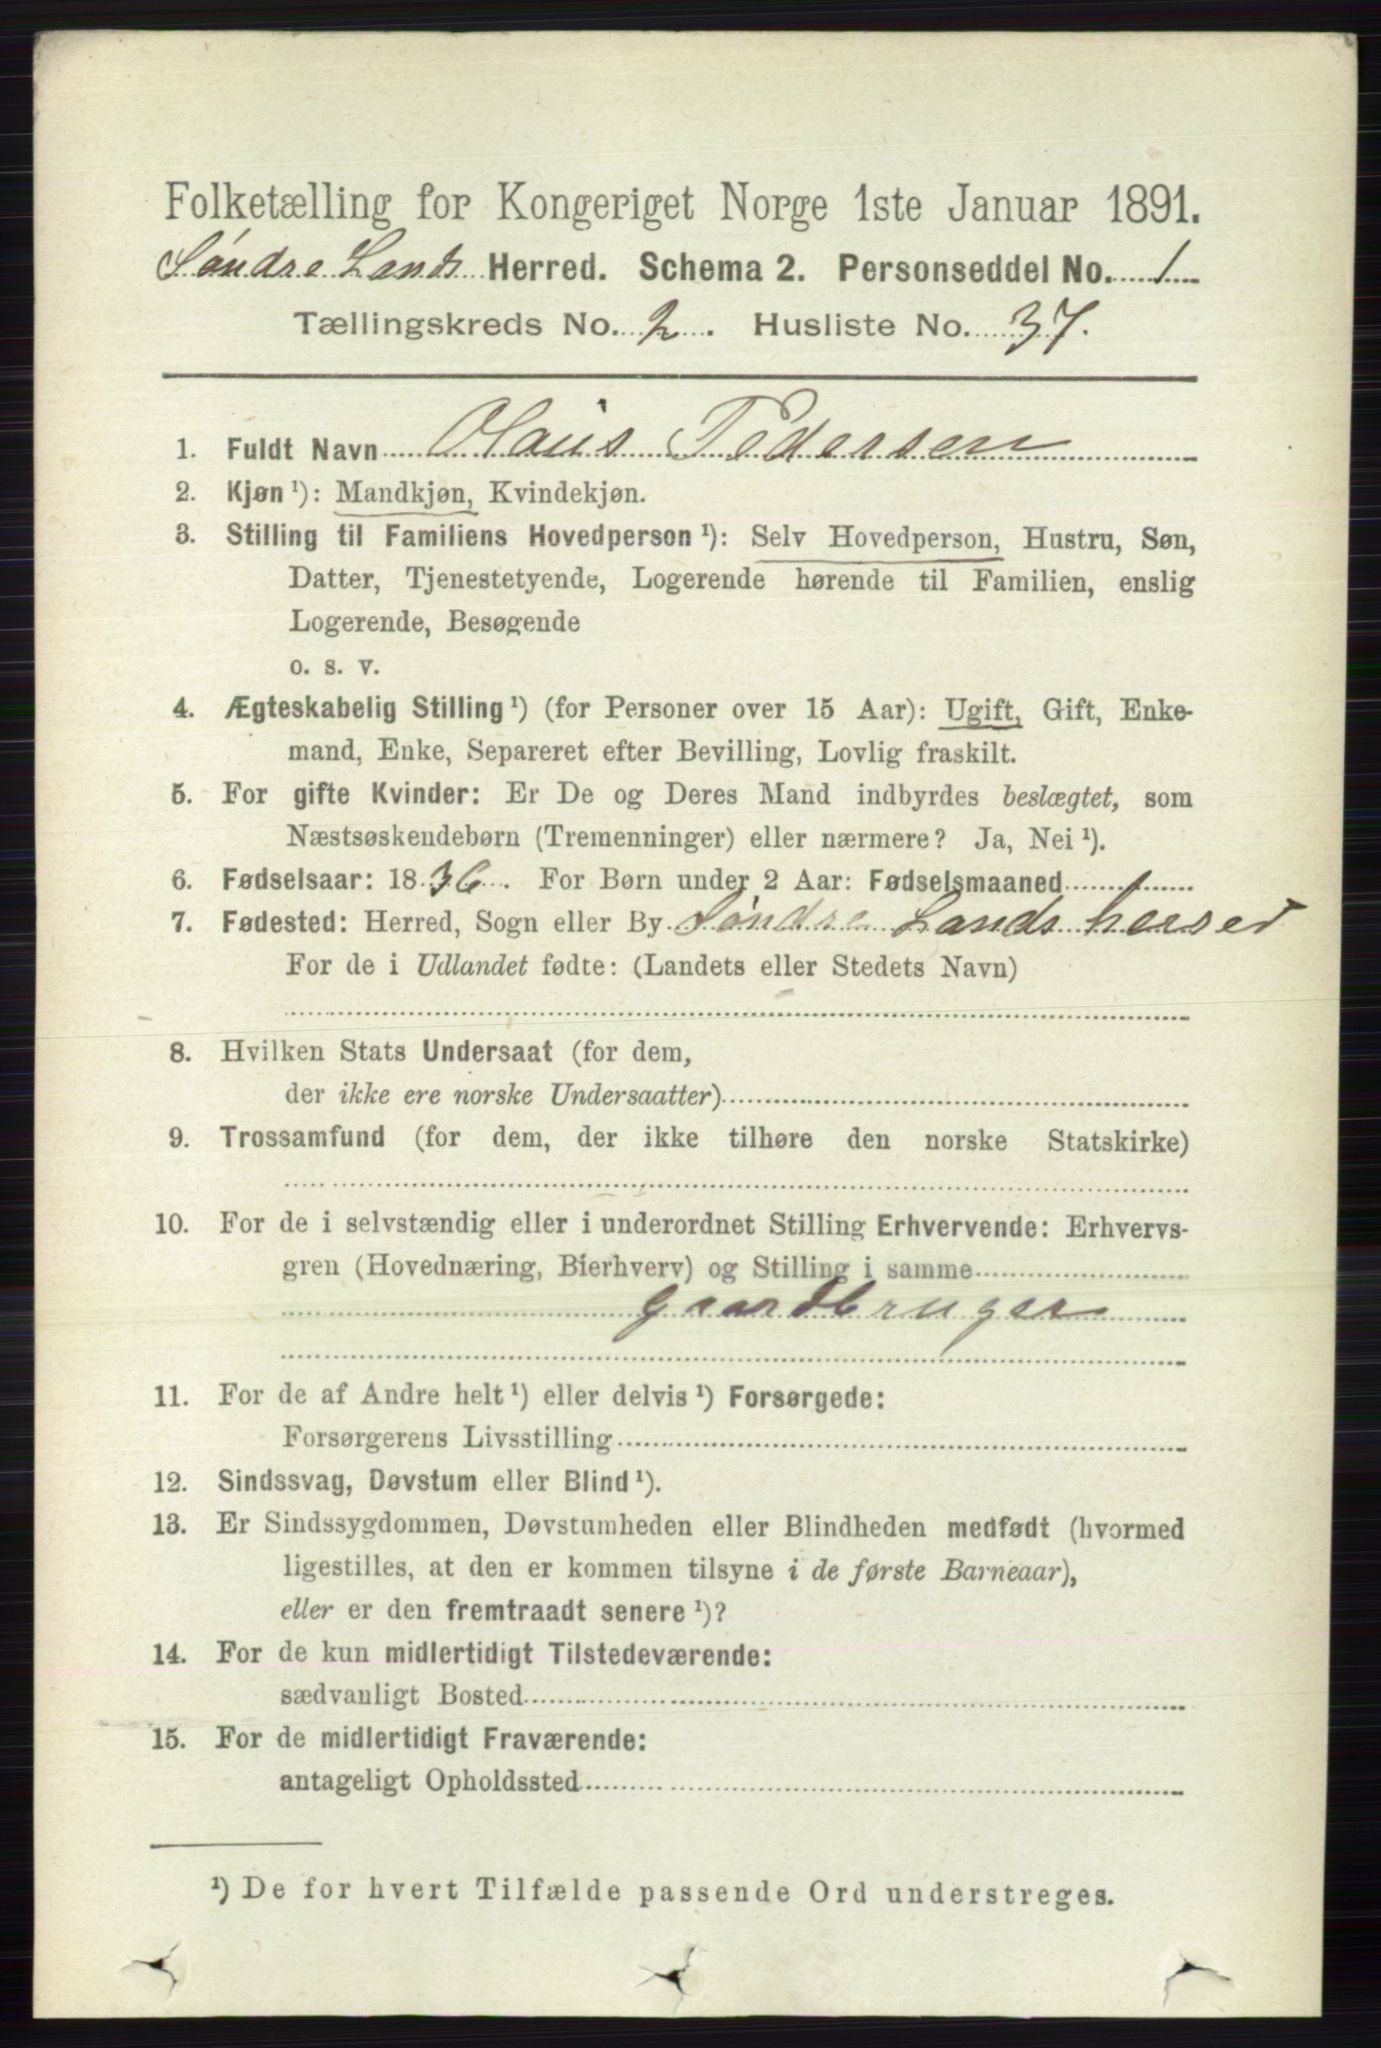 Folketælling for Kongeriget Norge 1ste Januar 1891.
Søndre Lands Herred. Schema 2. Personseddel No. 1
Tællingskreds No. 2. Husliste No. 37.
1. Fuldt Navn Olaus Pedersen
2. Kjøn ¹): Mandkjøn, Kvindekjøn.
3. Stilling til Familiens Hovedperson ¹): Selv Hovedperson, Hustru, Søn,
Datter, Tjenestetyende, Logerende hørende til Familien, enslig
Logerende, Besøgende
o. s. v.
4. Ægteskabelig Stilling ¹) (for Personer over 15 Aar): Ugift, Gift, Enke-
mand, Enke, Separeret efter Bevilling, Lovlig fraskilt.
5. For gifte Kvinder: Er De og Deres Mand indbyrdes beslægtet, som
Næstsøskendebørn (Tremenninger) eller nærmere? Ja, Nei ¹).
6. Fødselsaar: 1836. For Børn under 2 Aar: Fødselsmaaned
7. Fødested: Herred, Sogn eller By Søndre Lands herred
For de i Udlandet fødte: (Landets eller Stedets Navn)
8. Hvilken Stats Undersaat (for dem,
der ikke ere norske Undersaatter)
9. Trossamfund (for dem, der ikke tilhøre den norske Statskirke)
10. For de i selvstændig eller i underordnet Stilling Erhvervende: Erhvervs-
gren (Hovednæring, Bierhverv) og Stilling i samme
Gaardbruger
11. For de af Andre helt ¹) eller delvis ¹) Forsørgede:
Forsørgerens Livsstilling
12. Sindssvag, Døvstum eller Blind ¹).
13. Er Sindssygdommen, Døvstumheden eller Blindheden medfødt (hvormed
ligestilles, at den er kommen tilsyne i de første Barneaar),
eller er den fremtraadt senere ¹)?
14. For de kun midlertidigt Tilstedeværende:
sædvanligt Bosted
15. For de midlertidigt Fraværende:
antageligt Opholdssted
¹) De for hvert Tilfælde passende Ord understreges.